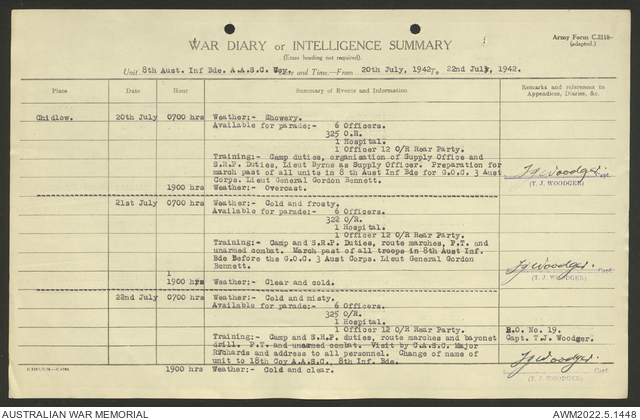 Army Form C.2118—
(adapted.)
WAR DIARY or INTELLIGENCE SUMMARY
(Erase heading not required).
Unit 8th Aust. Inf Bde. A.A.S.C. Coy. Date and Time.—From 20th July, 1942. To 22nd July, 1942.
Place Date Hour Summary of Events and Information Remarks and references to Appendices, Diaries, &c.
Chidlow. 20th July 0700 hrs Weather:- Showery.
Available for parade:- 6 Officers.
325 O.R.
1 Hospital.
1 Officer 12 O/R Rear Party.
Training:- Camp duties, organisation of Supply Office and
S.R.P. Duties, Lieut Byrns as Supply Officer. Preparation for
march past of all units in 8 th Aust Inf Bde for G.O.C. 3 Aust
Corps. Lieut General Gordon Bennett.
TJ Woodger. Capt.
(T. J. WOODGER)
1900 hrs Weather:- Overcast.
21st July 0700 hrs Weather:- Cold and frosty.
Available for parade:- 6 Officers.
322 O/R.
1 Hospital.
1 Officer 12 O/R Rear Party.
Training:- Camp and S.R.P. Duties, route marches, P.T. and
unarmed combat. March past of all troops in 8th Aust Inf.
Bde Before the G.O.C. 3 Aust Corps. Lieut General Gordon
Bennett.
TJ Woodger. Capt.
(T. J. WOODGER)
1
1900 hrs Weather:- Clear and cold.
22nd July 0700 hrs Weather:- Cold and misty.
Available for parade:- 6 Officers.
325 O/R
1 Hospital.
1 Officer 12 O/R Rear Party.
Training:- Camp and S.R.P. duties, route marches and bayonet
drill. P.T. and unarmed combat. Visit by C.A.S.C. Major
Richards and address to all personnel. Change of name of
unit to 18th Coy A.A.S.C. 8th Inf. Bde.
R.O. No. 19.
Capt. T.J. Woodger.
TJ Woodger.
(T. J. WOODGER)
1900 hrs Weather:- Cold and clear.
AUSTRALIAN WAR MEMORIAL
AWM2022.5.1448